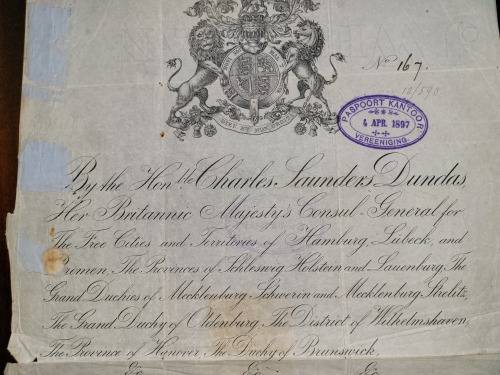 DIEU ET MON DROIT
No 167.
12/590
PASPOORT KANTOOR
4 APR. 1897
VEREENIGING.
By the Honble Charles Saunders Dundas,
Her Britannic Majesty's Consul-General for
The Free Cities and Territories of Hamburg, Lübeck, and
Bremen, The Provinces of Schleswig Holstein and Lauenburg, The
Grand Duchies of Mecklenburg Schwerin and Mecklenburg Strelitz,
The Grand Duchy of Oldenburg, The District of Wilhelmshaven,
The Province of Hanover, The Duchy of Brunswick,
&c &c &c